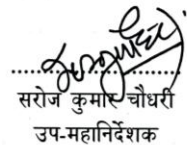 सरोज कुमार चौधरी
उप-महानिर्देशक